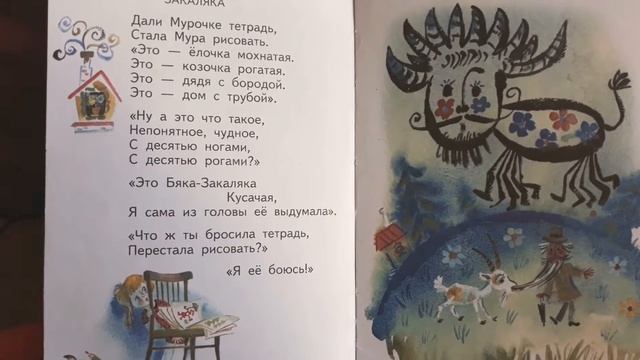 ЗАКАЛЯКА
Дали Мурочке тетрадь,
Стала Мура рисовать.
«Это — ёлочка мохнатая.
Это — козочка рогатая.
Это — дядя с бородой.
Это — дом с трубой».
«Ну а это что такое,
Непонятное, чудное,
С десятью ногами,
С десятью рогами?»
«Это Бяка-Закаляка
Кусачая,
Я сама из головы её выдумала».
«Что ж ты бросила тетрадь,
Перестала рисовать?»
«Я её боюсь!»